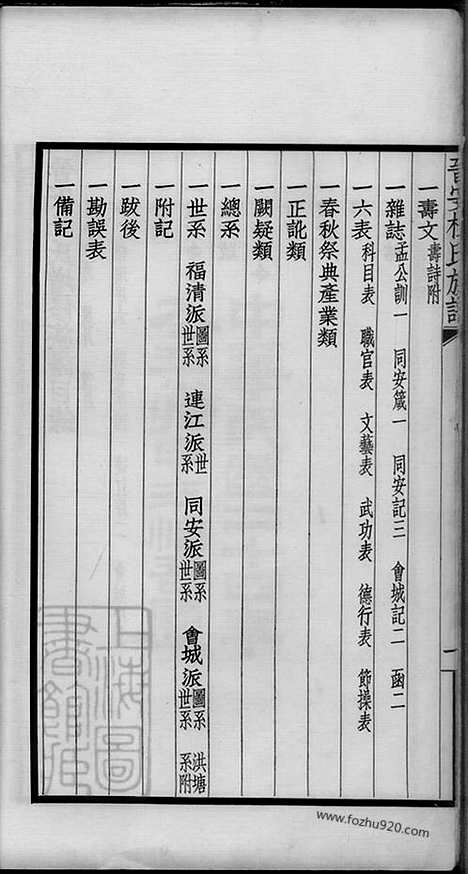 晉安杜氏族譜
一
一壽文 壽詩附
一雜誌 孟公訓一 同安箴一 同安記三 會城記二 函二
一六表 科目表 職官表 文藝表 武功表 德行表 節操表
一春秋祭典產業類
一正訛類
一闕疑類
一總系
一世系 福清派圖系世系 連江派世系 同安派圖系世系 會城派圖系世系 洪塘系附
一附記
一跋後
一勘誤表
一備記
上海圖書館藏
www.fozhu920.com